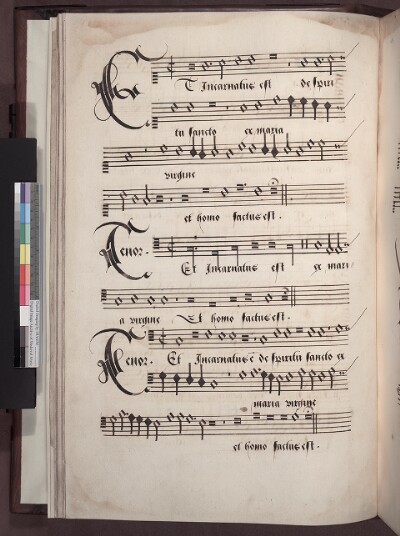 T Incarnatus est de spiri
tu sancto ex maria
virgine
et homo factus est .
Tenor .
Et Incarnatus est ex mari
a virgine Et homo factus est .
Tenor . Et Incarnatus ē de spiritu sancto ex
maria virgine
et homo factus est .